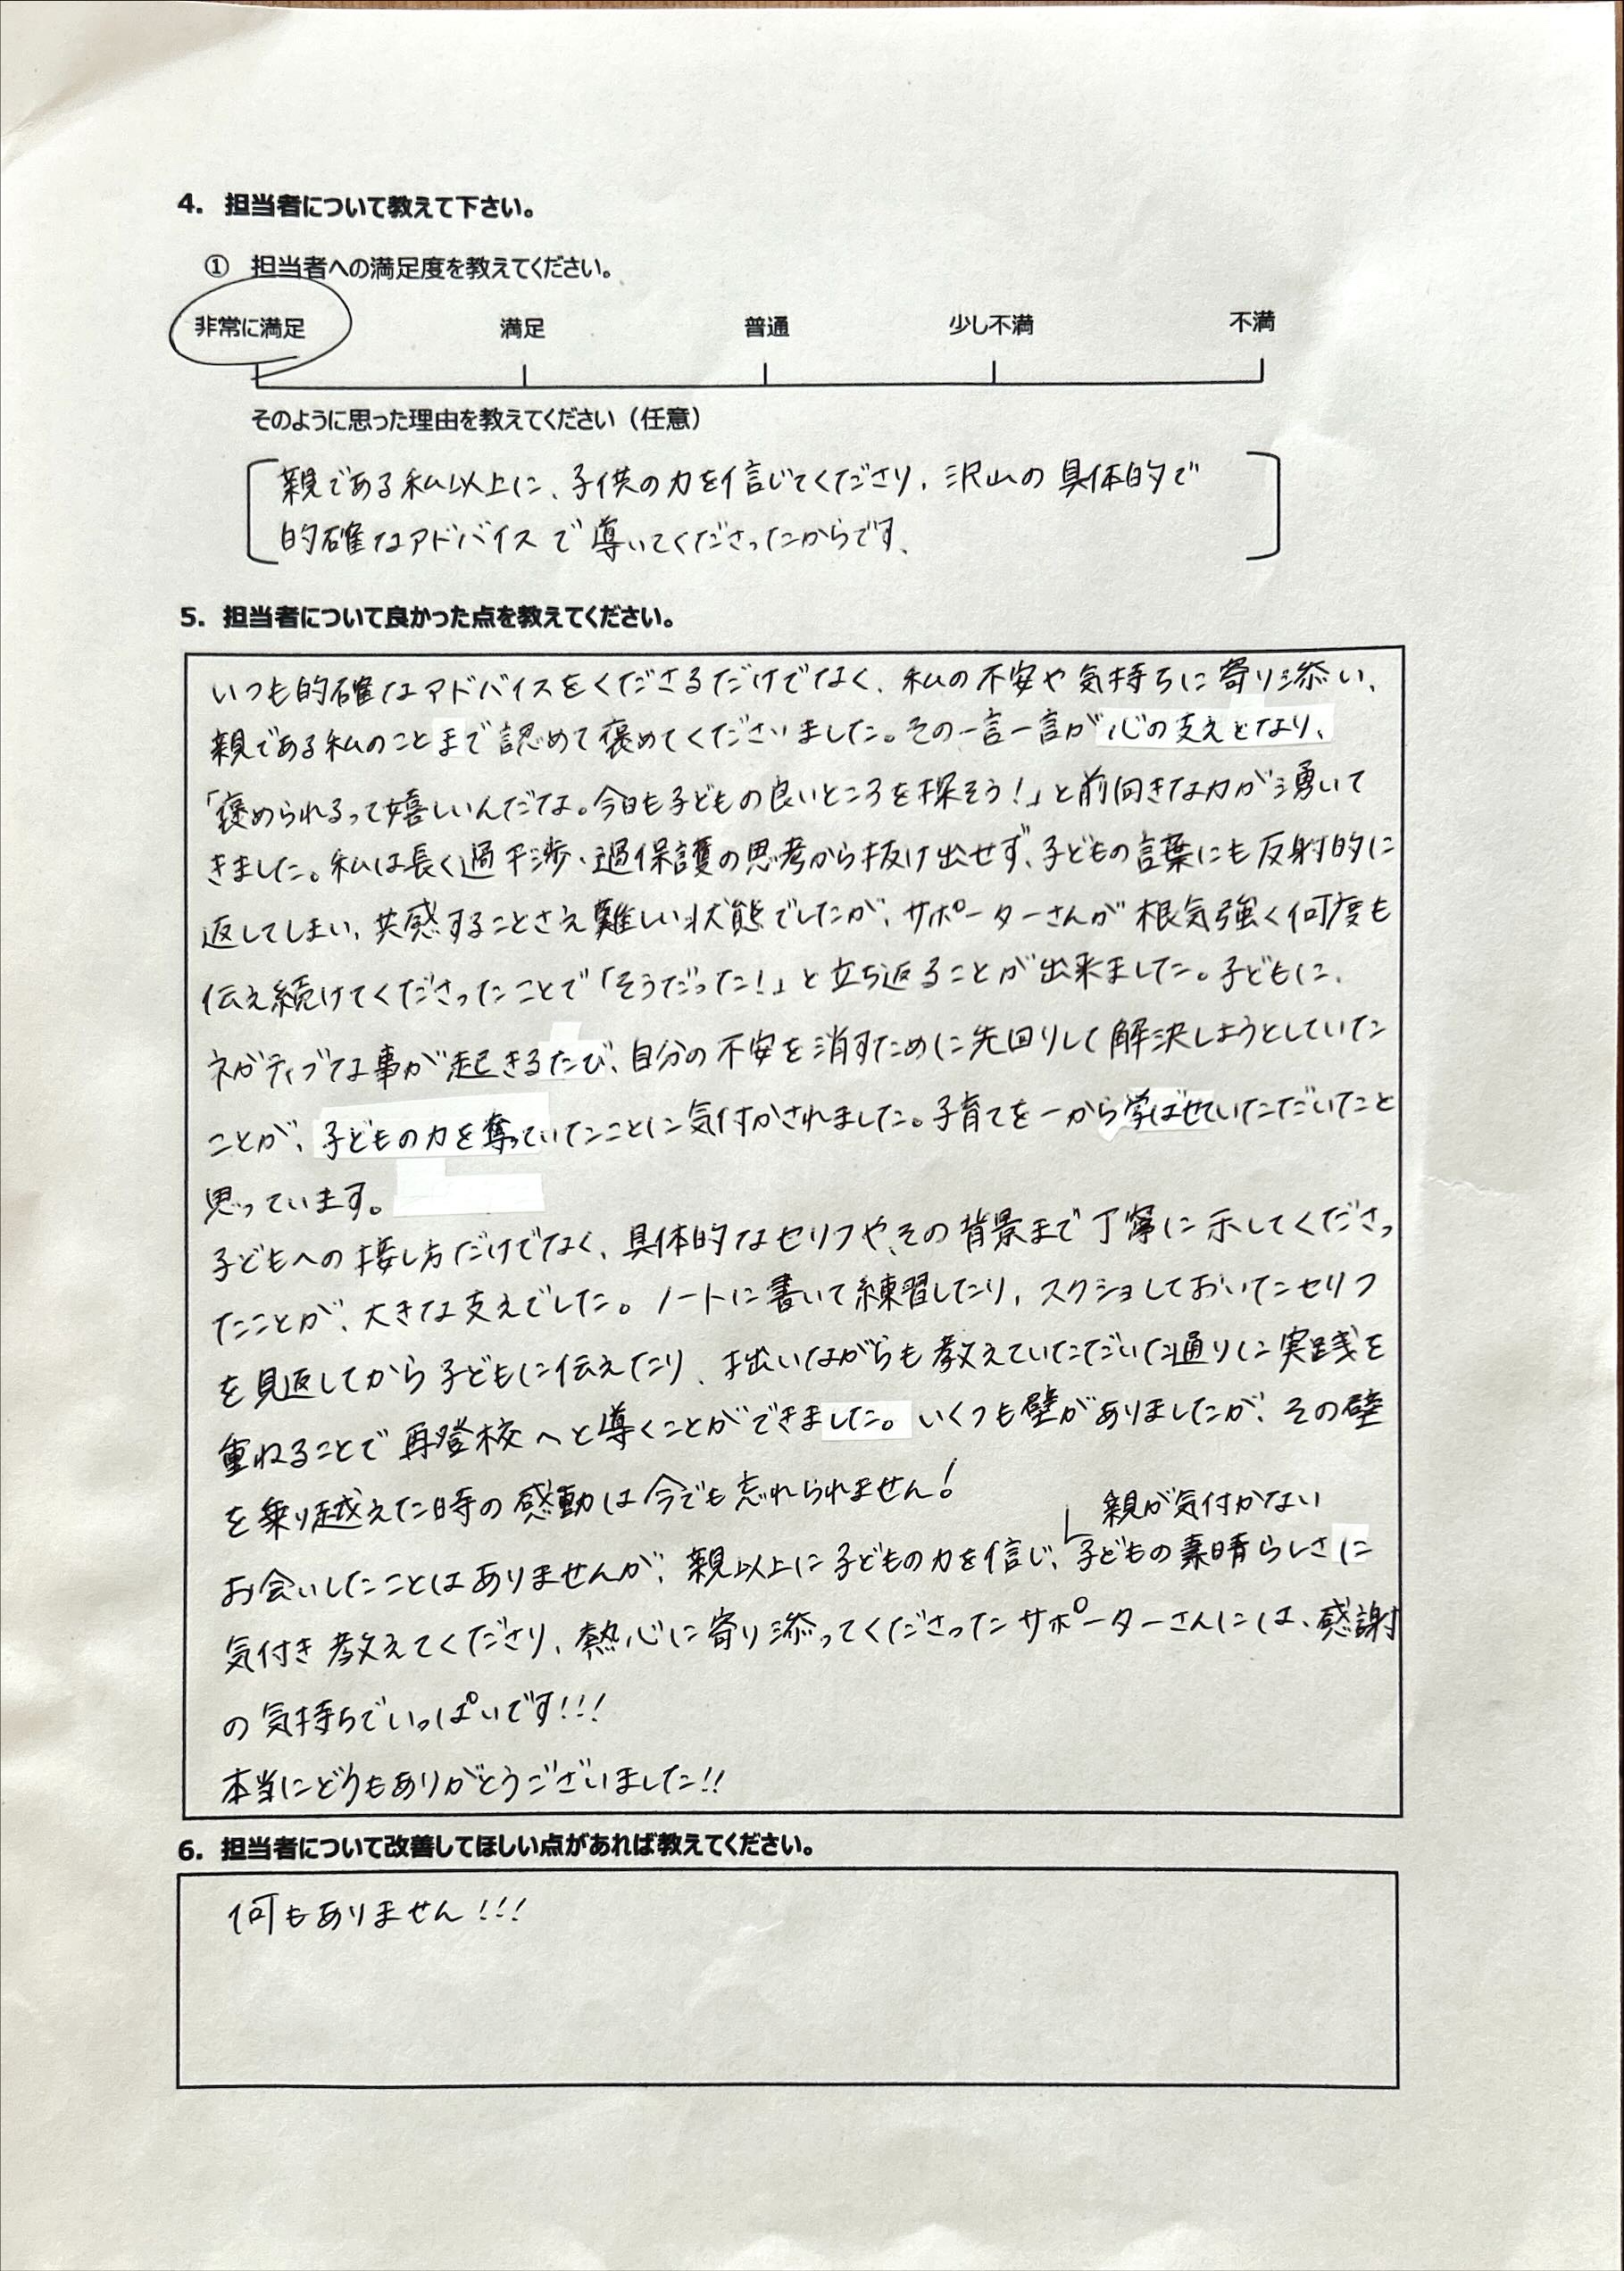 4. 担当者について教えて下さい。
① 担当者への満足度を教えてください。
非常に満足 満足 普通 少し不満 不満
そのように思った理由を教えてください（任意）
親である私以上に、子供の力を信じてくださり、沢山の具体的で
的確なアドバイスで導いてくださったからです、
5. 担当者について良かった点を教えてください。
いつも的確なアドバイスをくださるだけでなく、私の不安や気持ちに寄り添い、
親である私のことまで認めて褒めてくださいました。その一言一言が心の支えとなり、
「褒められるって嬉しいんだな。今日も子どもの良いところを探そう！」と前向きな力が湧いて
きました。私は長く過干渉・過保護の思考から抜け出せず、子どもの言葉にも反射的に
返してしまい、共感することさえ難しい状態でしたが、サポーターさんが根気強く何度も
伝え続けてくださったことで「そうだった！」と立ち返ることが出来ました。子どもに、
ネガティブな事が起きるたび、自分の不安を消すために先回りして解決しようとしていた
ことが、子どもの力を奪っていたことに気付かされました。子育てを一から学ばせていただいたこと
思っています。
子どもへの接し方だけでなく、具体的なセリフや、その背景まで丁寧に示してくださっ
たことが、大きな支えでした。ノートに書いて練習したり、スクショしておいたセリフ
を見返してから子どもに伝えたり、拙いながらも教えていただいた通りに実践を
重ねることで再登校へと導くことができました。いくつも壁がありましたが、その壁
を乗り越えた時の感動は今でも忘れられません！
親が気付かない
お会いしたことはありませんが、親以上に子どもの力を信じ、子どもの素晴らしさに
気付き教えてくださり、熱心に寄り添ってくださったサポーターさんには、感謝
の気持ちでいっぱいです!!!
本当にどうもありがとうございました!!
6. 担当者について改善してほしい点があれば教えてください。
何もありません!!!